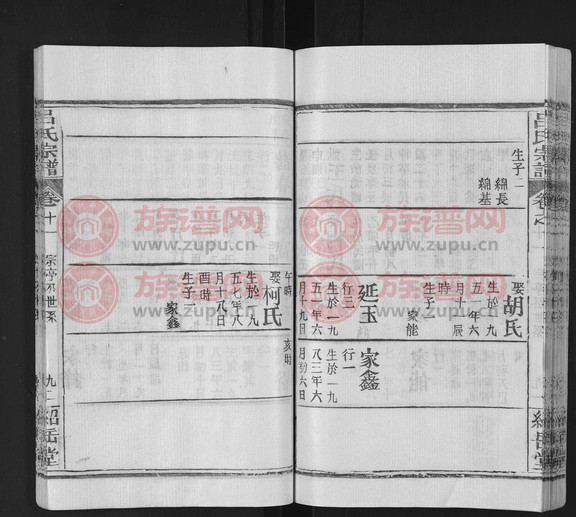 呂氏宗譜
卷之
紹岳堂
生子二
綿長
綿基
娶胡氏
生於一九
五一年六
月十一辰
時
生子一
家能
延玉
行三
生於一九
五五年六
月十九日
午時
家鑫
行一
生於一九
八三年六
月初六日
亥時
娶柯氏
生於一九
五七年八
月十八日
酉時
生子一
家鑫
呂氏宗譜
卷十一
九二
紹岳堂
族谱网
www.zupu.cn
族谱网
www.zupu.cn
族谱网
www.zupu.cn
族谱网
www.zupu.cn